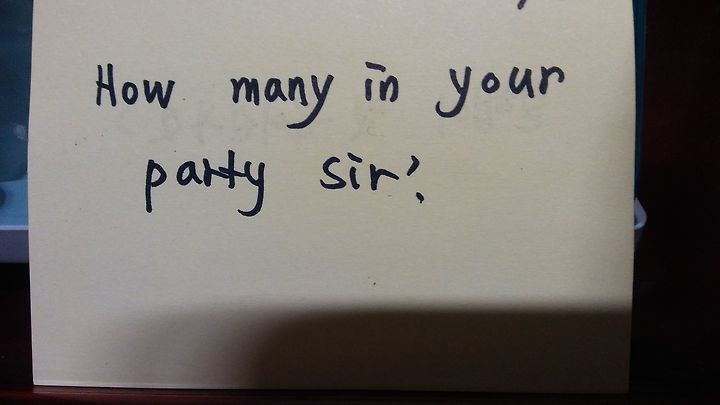 How many in your
party sir?